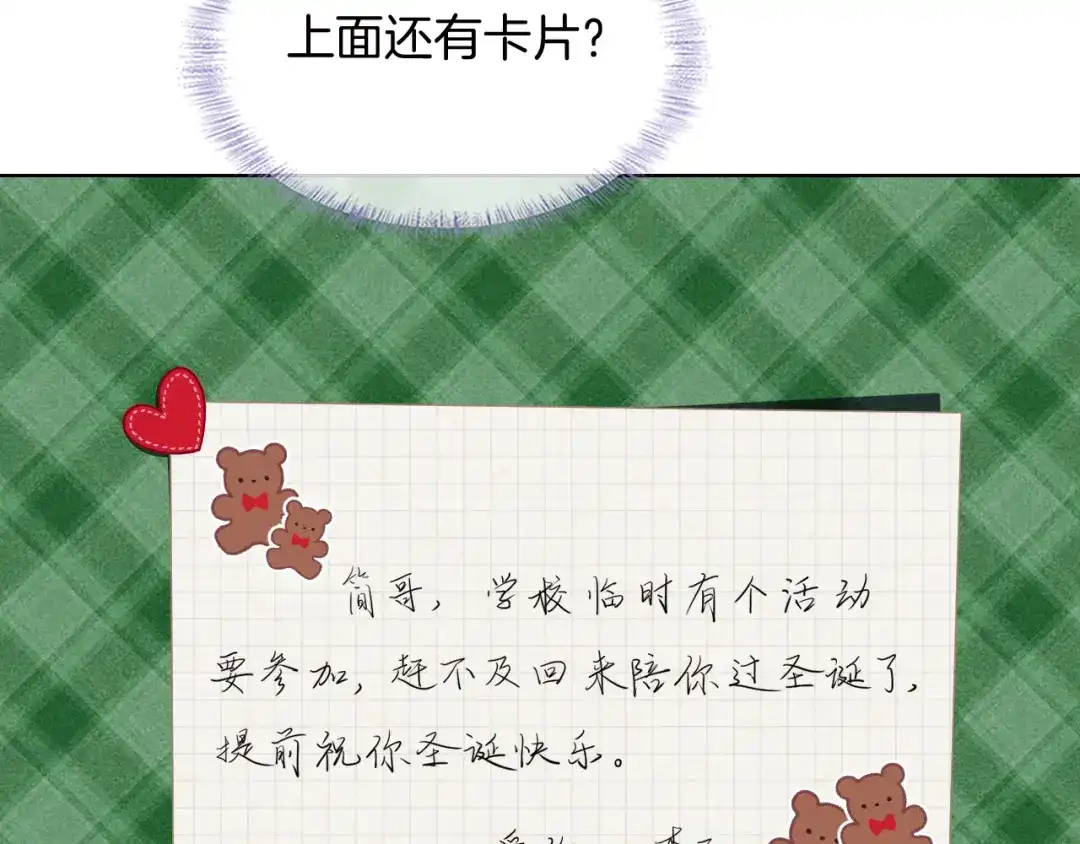 上面还有卡片?
简哥，学校临时有个活动
要参加，赶不及回来陪你过圣诞了，
提前祝你圣诞快乐。